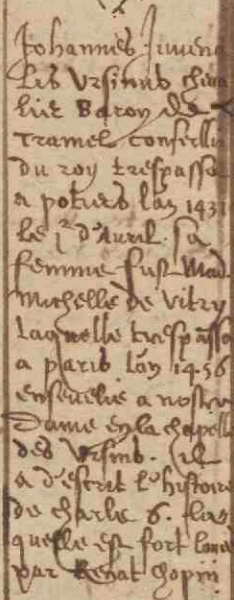 Johannes Juvena
lis Ursinus cheva
lier Baron de
Tramel conseillie
du roy trespassa
a potiers l'an 1431
le 1.r d'Avril. Sa
femme fust Mad
Michelle de Vitry
laquelle trespassa
a paris l'an 1456
ensevelie a nostre
Dame en la chapelle
des Ursins. il
a d'escrit l'histoire
de charle 6. la
quelle est fort louee
par Renat chopin